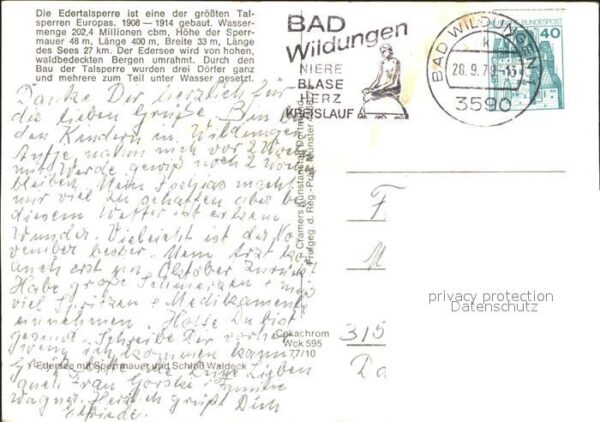 Die Edertalsperre ist eine der größten Tal-
sperren Europas. 1908 — 1914 gebaut. Wasser-
menge 202,4 Millionen cbm, Höhe der Sperr-
mauer 48 m, Länge 400 m, Breite 33 m, Länge
des Sees 27 km. Der Edersee wird von hohen,
waldbedeckten Bergen umrahmt. Durch den
Bau der Talsperre wurden drei Dörfer ganz
und mehrere zum Teil unter Wasser gesetzt.
BAD
Wildungen
NIERE
BLASE
HERZ
KREISLAUF
BAD WILDUNGEN
k
28.9.79-13
3590
BUNDESPOST
40
Danke Dir herzlich für
die lieben Grüße. Bin
den Kindern in Wildungen
nahm mich vor 2 Woch
mit. Werde gewiß noch 2 Woch
bleiben. Mein macht
mir viel zu schaffen aber bei
diesem Wetter ist es kein
Wunder. Vielleicht ist der No
vember besser. Mein Arzt
auch erst im Oktober zurück
Habe große Schmerzen + muß
viel Spritzen + Medikamente
einnehmen. Hoffe Du bist
gesund. Schreibe Dir vorher
wenn ich kommen kann
Grüße Deine Lieben
auch Frau + Familie
Wagner. Herzlich grüßt Dich
Elfriede.
Cramers Kunstanstalt Dortmund
Freigeg. d. Reg.-Präs. Münster
Cekachrom
Wck 595
77/10
Edersee mit Sperrmauer und Schloß Waldeck
F
M
315
Da
privacy protection
Datenschutz